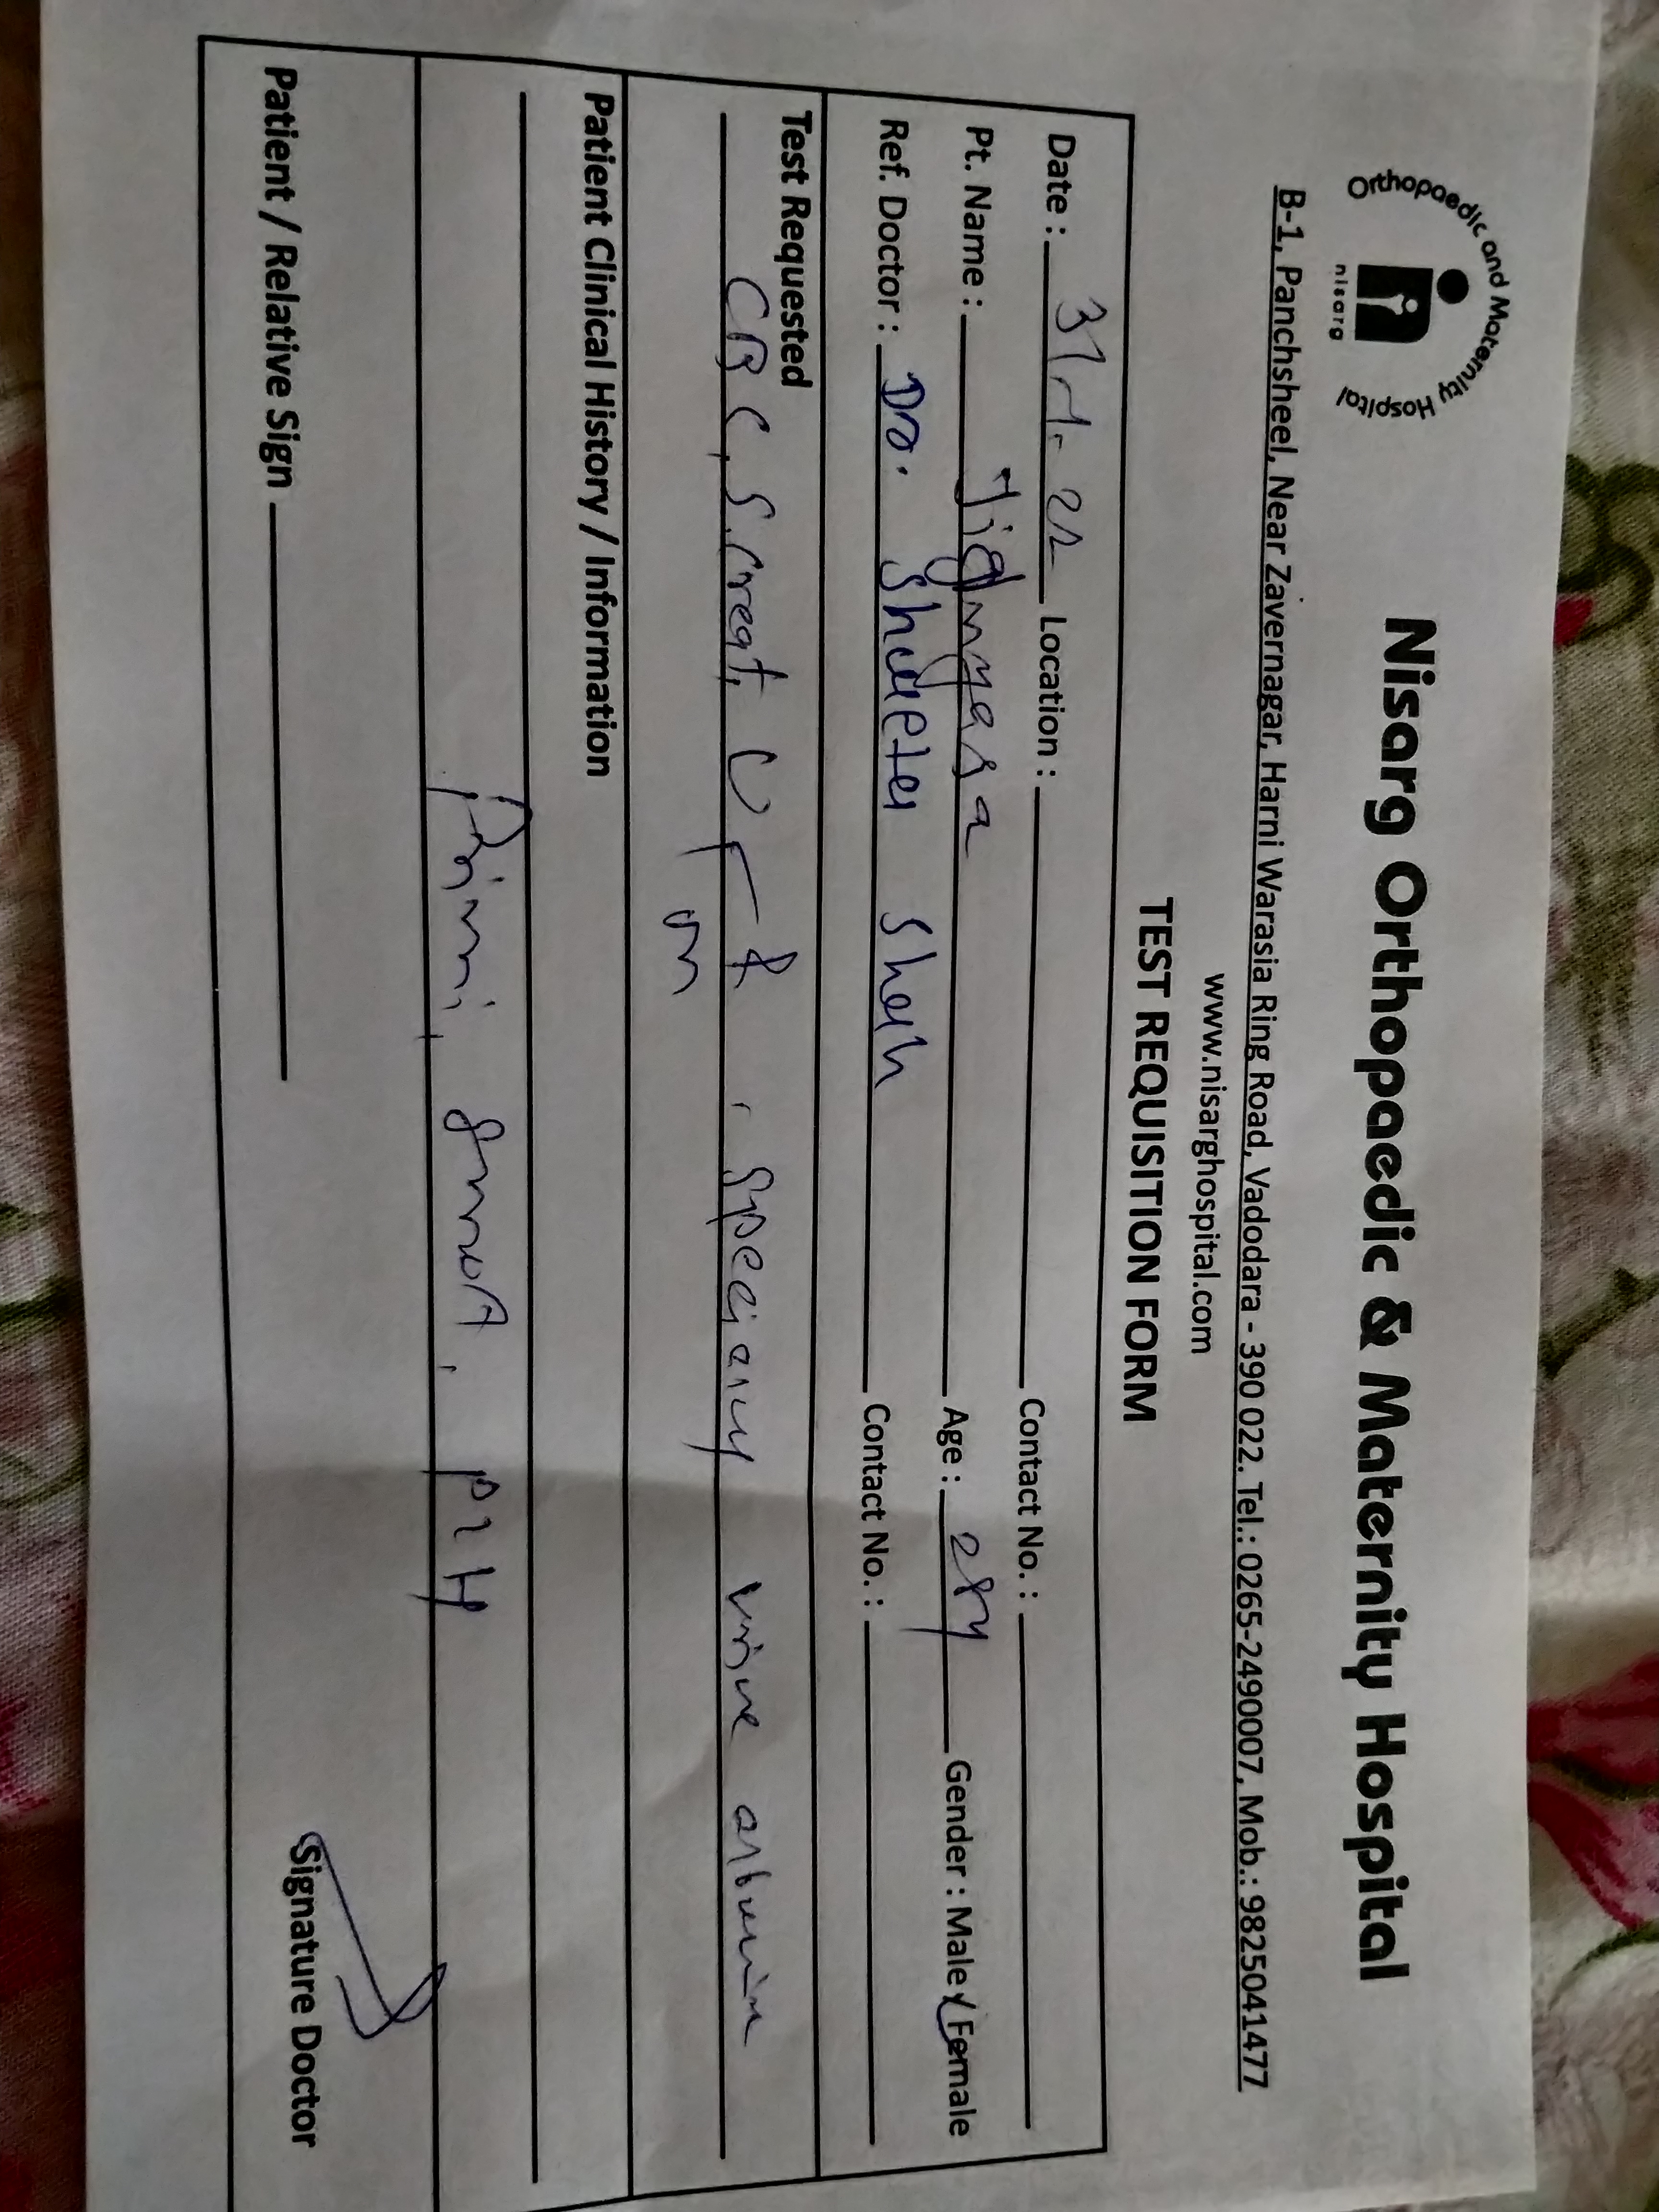 Orthopaedic and Maternity Hospital
nisarg
Nisarg Orthopaedic & Maternity Hospital
B-1, Panchsheel, Near Zavernagar, Harni Warasia Ring Road, Vadodara - 390 022. Tel.: 0265-2490007, Mob.: 9825041477
www.nisarghospital.com
TEST REQUISITION FORM
Date : 31-1-22 Location : Contact No. :
Pt. Name : Jignyasa Age : 28y Gender : Male / Female
Ref. Doctor : Dr. Shah Contact No. :
Test Requested
CBC, S.Creat, urine albumin
Patient Clinical History / Information
Primi, PIH
Patient / Relative Sign
Signature Doctor